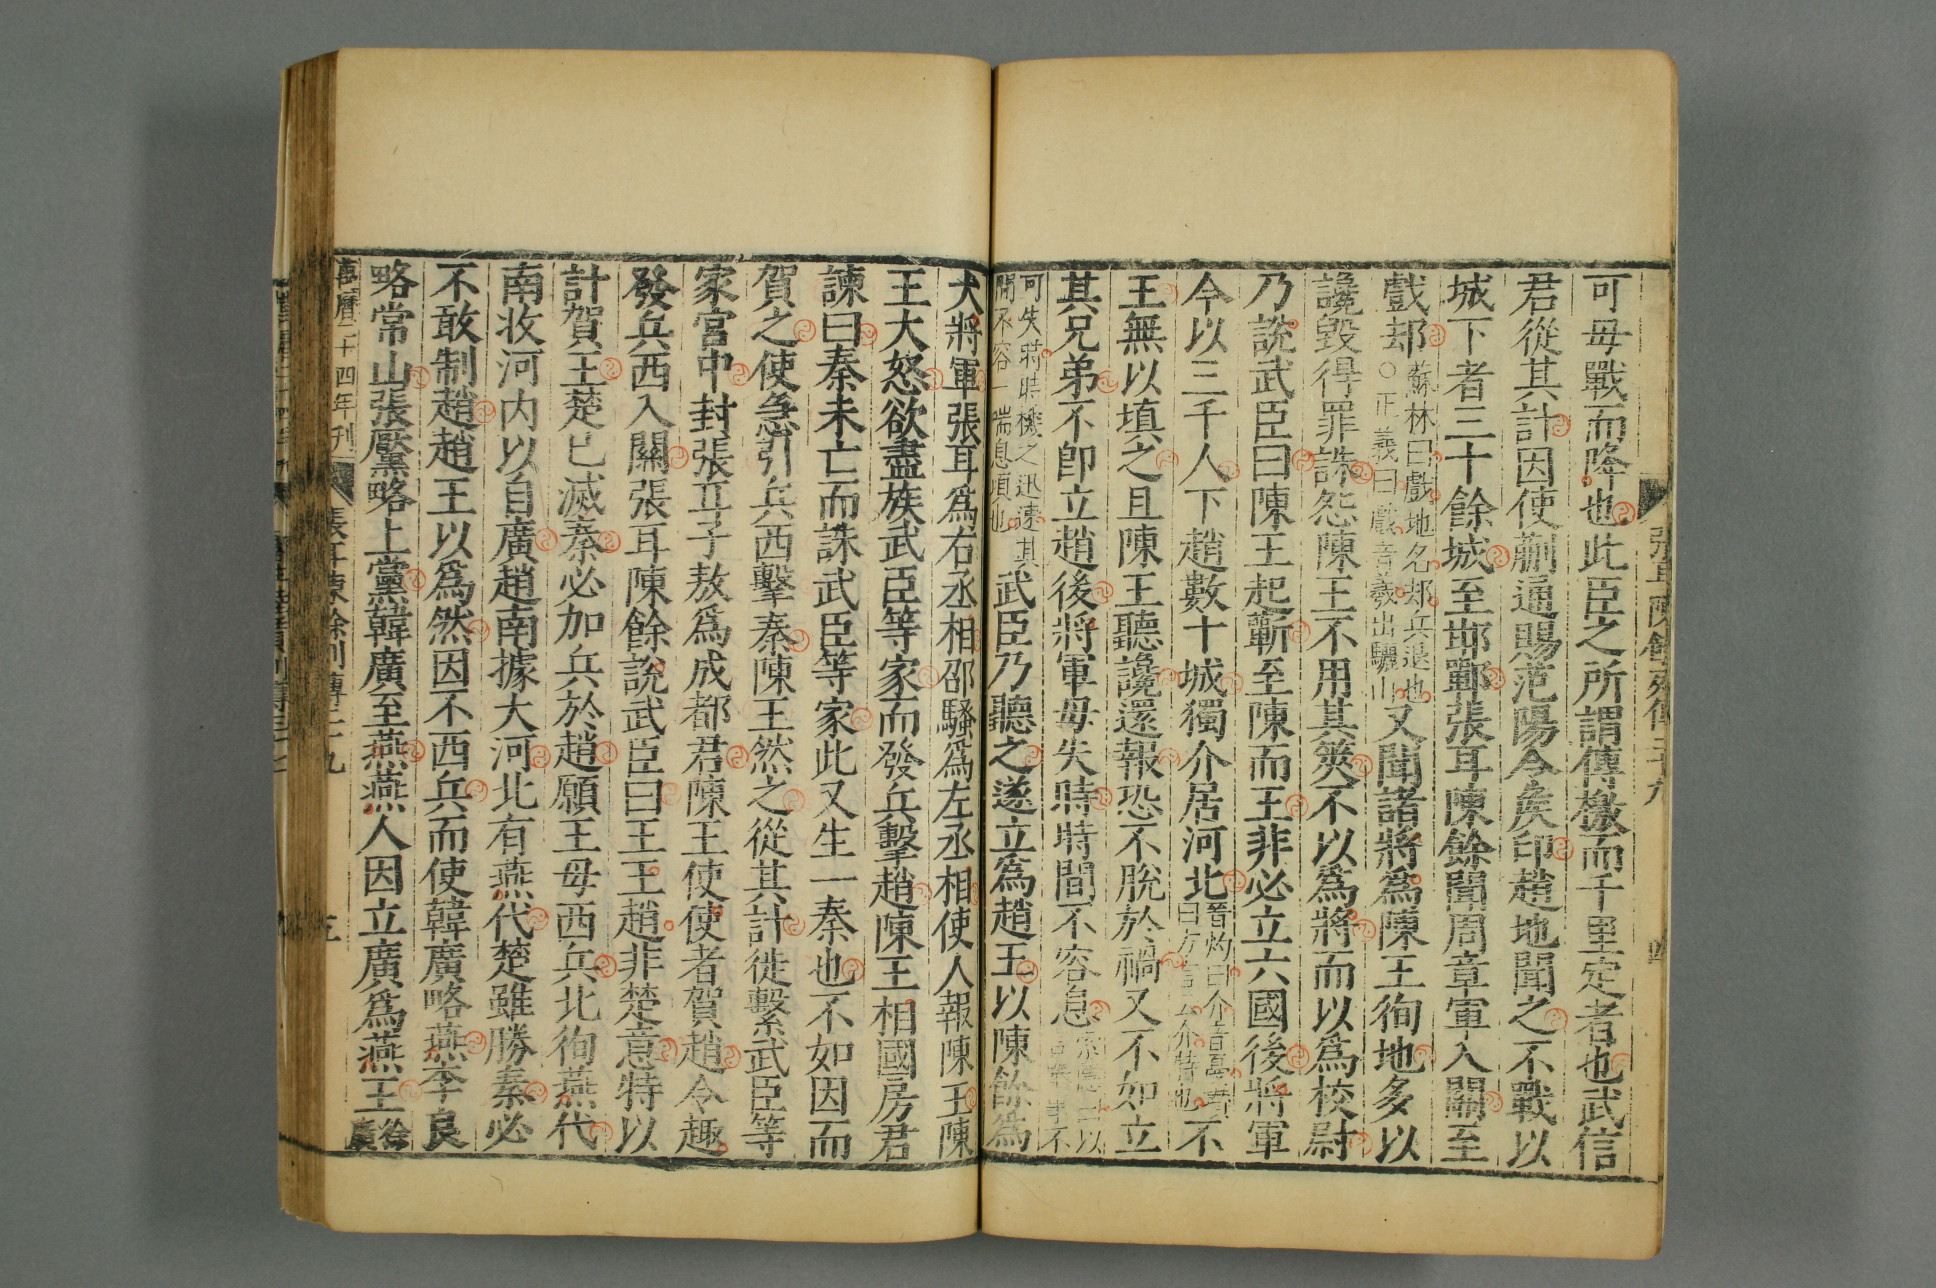 張耳陳餘列傳二十九
四
可毋戰而降也此臣之所謂傳檄而千里定者也武信
君從其計因使蒯通賜范陽令矦印趙地聞之不戰以
城下者三十餘城至邯鄲張耳陳餘聞周章軍入關至
戲却蘇林曰戲地名却兵退也○正義曰戲音羲出驪山又聞諸將爲陳王徇地多以
讒毀得罪誅怨陳王不用其筴不以爲將而以爲校尉
乃說武臣曰陳王起蘄至陳而王非必立六國後將軍
今以三千人下趙數十城獨介居河北晉灼曰介音戛瓚曰方言云介特也不
王無以填之且陳王聽讒還報恐不脫於禍又不如立
其兄弟不卽立趙後將軍毋失時時閒不容息索隱曰以言舉事不
可失時時機之迅速其閒不容一喘息頃也武臣乃聽之遂立爲趙王以陳餘爲
大將軍張耳爲右丞相邵騷爲左丞相使人報陳王陳
王大怒欲盡族武臣等家而發兵擊趙陳王相國房君
諫曰秦未亡而誅武臣等家此又生一秦也不如因而
賀之使急引兵西擊秦陳王然之從其計徙繫武臣等
家宮中封張耳子敖爲成都君陳王使使者賀趙令趣
發兵西入關張耳陳餘說武臣曰王王趙非楚意特以
計賀王楚已滅秦必加兵於趙願王毋西兵北徇燕代
南收河内以自廣趙南據大河北有燕代楚雖勝秦必
不敢制趙趙王以爲然因不西兵而使韓廣略燕李良
略常山張黶略上黨韓廣至燕燕人因立廣爲燕王徐廣
萬曆二十四年刊
張耳陳餘列傳二十九
五